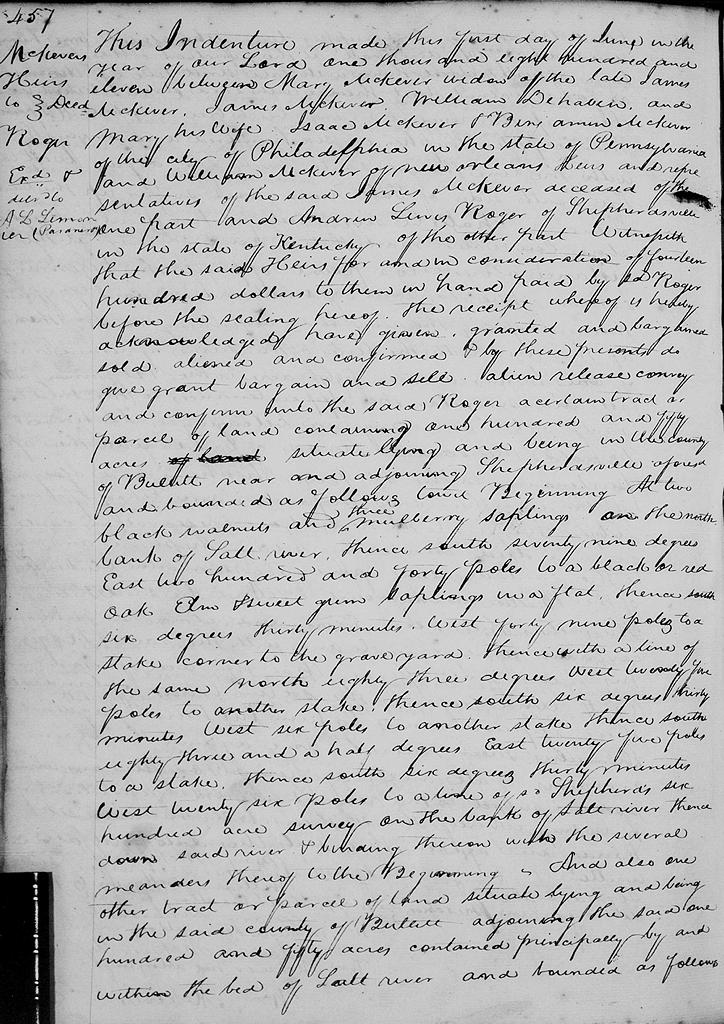 457
McKevers
Heirs
to } Deed
Roger
Exd &
deld to
A L
This Indenture made this first day of June in the
year of our Lord one thousand eight hundred and
eleven between Mary McKever widow of the late James
McKever, James McKever William Dehaven, and
Mary his Wife. Isaac McKever & Benjamin McKever
of the city of Philadelphia in the state of Pennsylvania
and William McKever of new orleans Heirs and repre
sentatives of the said James McKever deceased of the
one part and Andrew Lewis Roger of Shepherdsville
in the state of Kentucky of the other part Witnesseth
that the said Heirs for and in consideration of fourteen
hundred dollars to them in hand paid by sd Roger
before the sealing hereof. The receipt whereof is hereby
acknowledged have given, granted and bargained
sold aliened and confirmed & by these presents do
give grant bargain and sell. alien release convey
and confirm unto the said Roger a certain tract or
parcel of land containing one hundred and fifty
acres of land situate lying and being in the county
of Bullitt near and adjoining Shepherdsville aforesd
and bounded as follows towit Beginning At two
black walnuts and three mulberry saplings on the north
bank of Salt river, thence south seventy nine degrees
East two hundred and forty poles to a black or red
oak Elm & sweet gum saplings in a flat, thence south
six degrees thirty minutes. West forty nine poles to a
stake corner to the grave yard. thence with a line of
the same north eighty three degrees West twenty five
poles to another stake. thence south six degrees thirty
minutes West six poles to another stake thence south
eighty three and a half degrees East twenty five poles
to a stake. thence south six degrees thirty minutes
West twenty six poles to a line of sd Shepherds six
hundred acre survey on the bank of salt river thence
down said river & binding thereon with the several
meanders thereof to the Beginning. And also one
other tract or parcel of land situate lying and being
in the said county of Bullitt adjoining the said one
hundred and fifty acres contained principally by and
within the bed of Salt river and bounded as follows